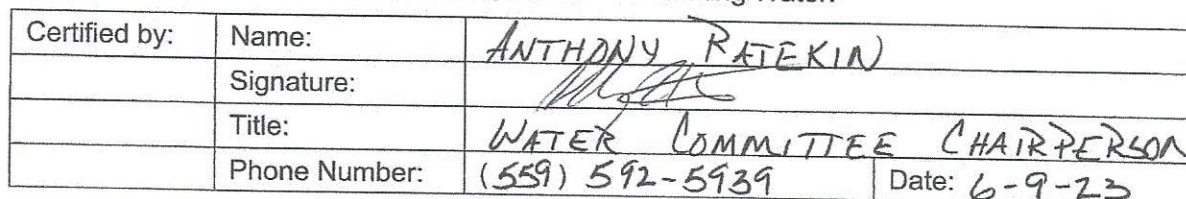 Certified by: Name: ANTHONY RATEKIN
Signature:
Title: WATER COMMITTEE CHAIRPERSON
Phone Number: (559) 592-5939 Date: 6-9-23